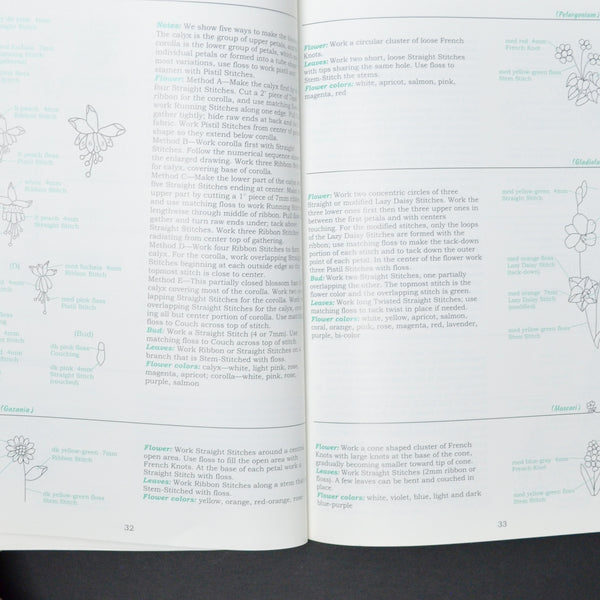 Notes: We show five ways to make the
The calyx is the group of upper petals,
corolla is the lower group of petals, which
individual petals or formed into a tube
most variations, use floss to work pistil
stamen with Pistil Stitches.
Flower: Method A—Make the calyx first
four Straight Stitches. Cut a 2" piece of 7mm
ribbon for the corolla, and use matching
work Running Stitches along one edge. Pull
gather tightly; hide raw ends at back and
fabric. Work Pistil Stitches from center of
shape so they extend below corolla.
Method B—Work corolla first with Straight
Stitches. Follow the numerical sequence
the enlarged drawing. Work three Ribbon
for calyx, covering base of corolla.
Method C—Make the lower part of the calyx
five Straight Stitches ending at center. Make
upper part by cutting a 1" piece of 7mm
and use matching floss to work Running
lengthwise through middle of ribbon. Pull
gather and turn raw ends under; tack
Straight Stitches. Work three Ribbon Stitches
radiating from center top of gathering.
Method D—Work four Ribbon Stitches
calyx. For the corolla, work overlapping Straight
Stitches beginning at each outside edge so the
topmost stitch is close to center.
Method E—This partially closed blossom has
calyx covering most of the corolla. Work two
lapping Straight Stitches for the corolla. Work
overlapping Straight Stitches for the calyx,
ing all but center portion of corolla. Use matching
floss to Couch across top of stitch.
Bud: Work a Straight Stitch (4 or 7mm). Use
matching floss to Couch across top of stitch.
Leaves: Work Ribbon or Straight Stitches on
branch that is Stem-Stitched with floss.
Flower colors: calyx—white, light pink, rose,
magenta, apricot; corolla—white, pink, rose,
purple, salmon
4mm
Straight Stitch
med fuchsia 7mm
Stitch
lt peach 4mm
Straight Stitch
lt peach floss
Pistil Stitch
white 4mm
Ribbon Stitch
lt peach 4mm
Straight Stitch
(D)
med fuchsia 4mm
Ribbon Stitch
4mm
Stitch
med pink floss
Pistil Stitch
(Bud)
dk pink floss
Couching
dk pink 4mm
Straight Stitch
(couched)
(Gazania)
dk yellow-green 7mm
Ribbon Stitch
dk yellow-green floss
Stem Stitch
Flower: Work Straight Stitches around a center
open area. Use floss to fill the open area with
French Knots. At the base of each petal work a
Straight Stitch with floss.
Leaves: Work Ribbon Stitches along a stem that is
Stem-Stitched with floss.
Flower colors: yellow, orange, red-orange, rose
32
(Pelargonium)
Flower: Work a circular cluster of loose French
Knots.
Leaves: Work two short, loose Straight Stitches
with tips sharing the same hole. Use floss to
Stem-Stitch the stems.
Flower colors: white, apricot, salmon, pink,
magenta, red
med red 4mm
French Knot
med yellow-green floss
Stem Stitch
(Gladiolus
Flower: Work two concentric circles of three
Straight or modified Lazy Daisy Stitches. Work the
three lower ones first then the three upper ones in
between the first petals and with centers
touching. For the modified stitches, only the loops
of the Lazy Daisy Stitches are formed with the
ribbon; use matching floss to make the tack-down
portion of each stitch and to tack down the outer
point of each petal. In the center of the flower work
three Pistil Stitches with floss.
Bud: Work two Straight Stitches, one partially
overlapping the other. The topmost stitch is the
flower color and the overlapping stitch is green.
Leaves: Work long Twisted Straight Stitches; use
matching floss to tack twist in place if needed.
Flower colors: white, yellow, apricot, salmon,
coral, orange, pink, rose, magenta, red, lavender,
purple, bi-color
med yellow-green 4mm
Straight Stitch
med orange floss
Lazy Daisy Stitch
(tack-down)
med orange 7mm
Lazy Daisy Stitch
(modified)
med yellow-green floss
Stem Stitch
(Muscari)
Flower: Work a cone shaped cluster of French
Knots with large knots at the base of the cone,
gradually becoming smaller toward tip of cone.
Leaves: Work Straight Stitches (2mm ribbon or
floss). A few leaves can be bent and couched in
place.
Flower colors: white, violet, blue, light and dark
blue-purple
med blue-gray 4mm
French Knot
med yellow-green floss
Stem Stitch
33